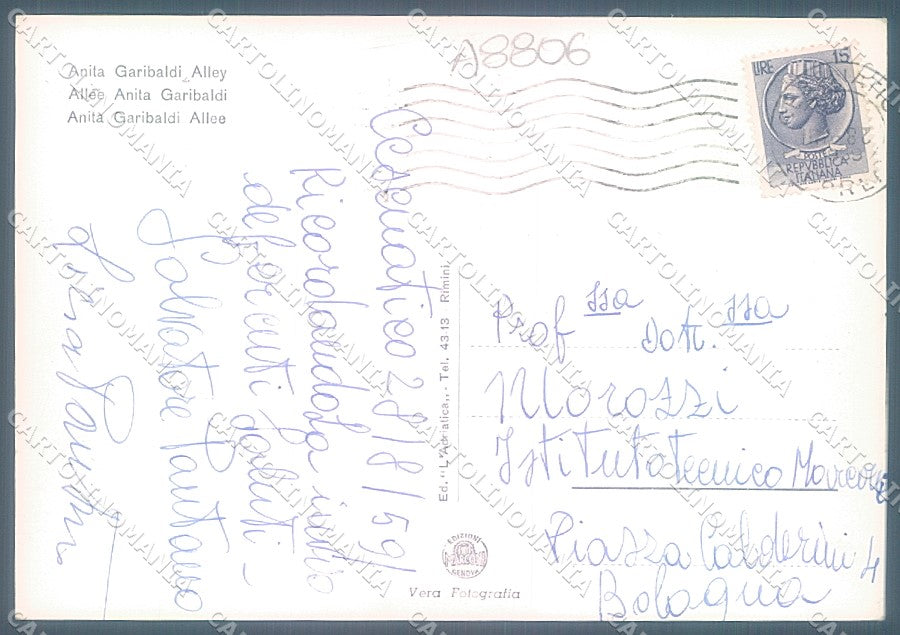 18806
Anita Garibaldi Alley
Allée Anita Garibaldi
Anita Garibaldi Allee
LIRE 15
POSTE
REPVBBLICA
ITALIANA
Cesenatico 28/8/59
Ricordandola
deferenti saluti
Salvatore Pantano
Prof ssa Dott. ssa
Morozzi
Istituto tecnico Marconi
Piazza Calderini 4
Bologna
Ed. "L'Adriatica,, Tel. 4313 Rimini
EDIZIONI
GENOVA
Vera Fotografia
CARTOLINOMANIA